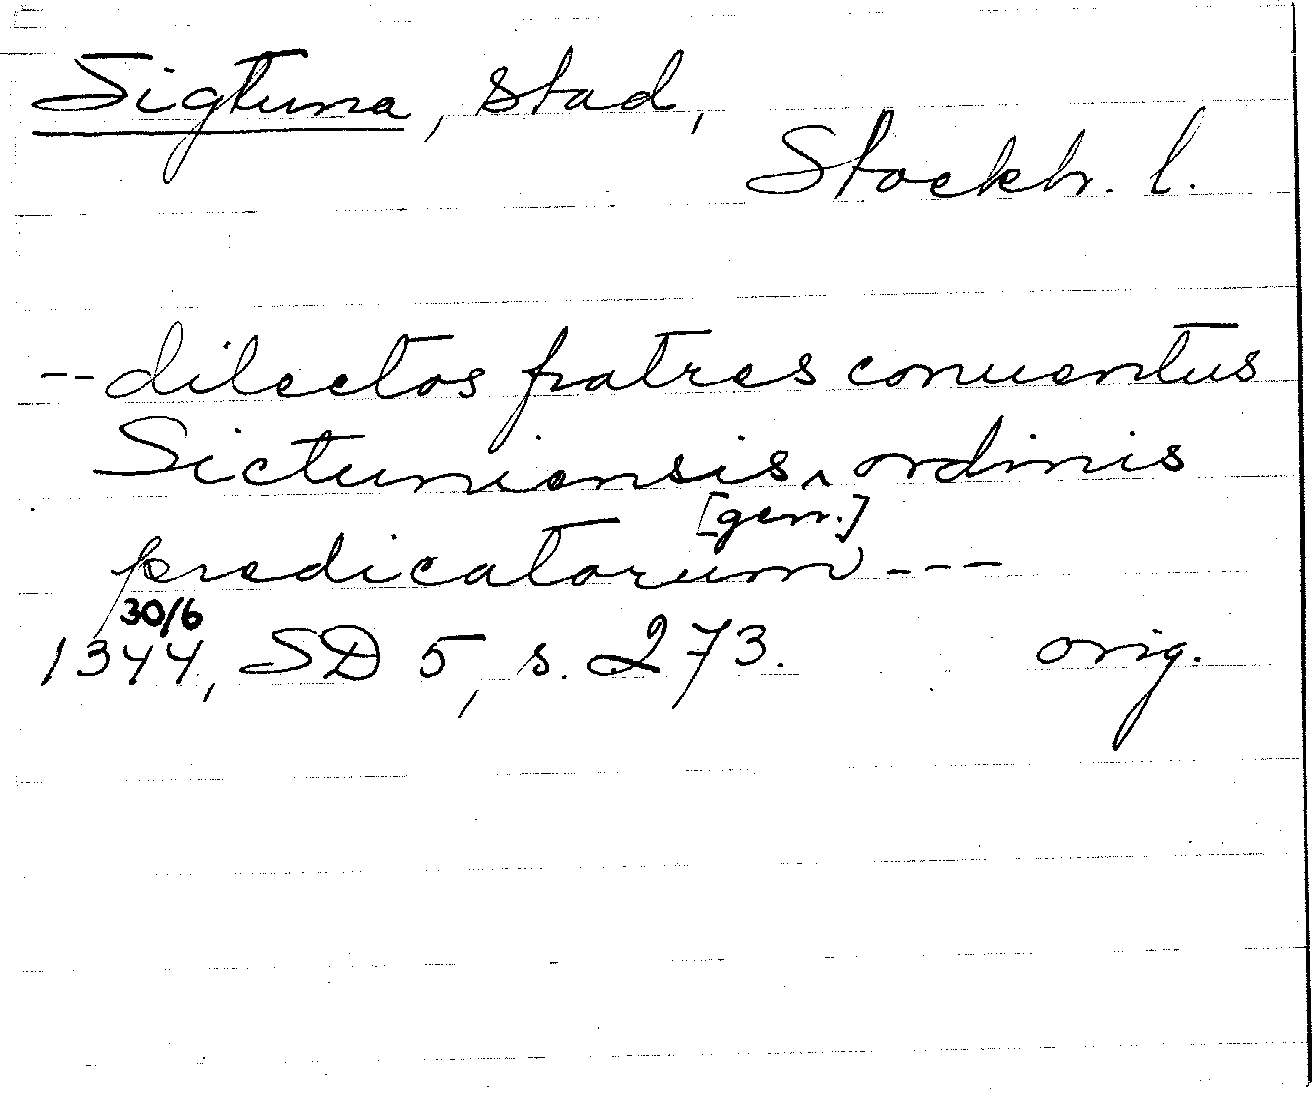 Sigtuna, stad,
Stockh. l.
--dilectos fratres conuentus
Sictuniensis ^ ordinis
[gen.]
predicatorum ---
30/6
1344, SD 5, s. 273. orig.